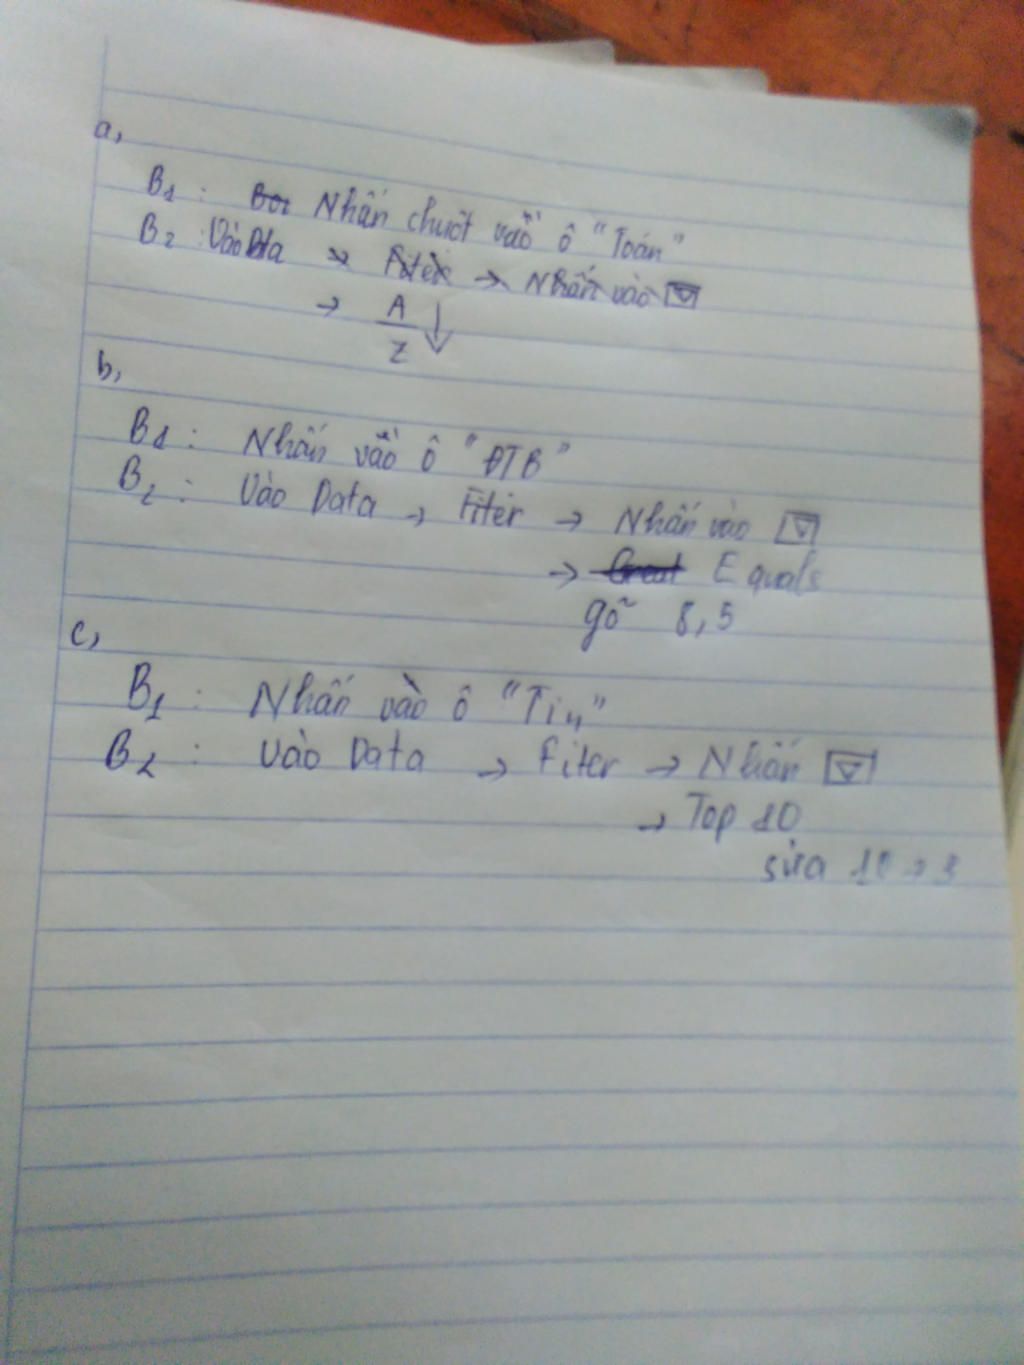 a,
B1 : Nhấn chuột vào ô "Toán"
B2 : Vào Data → Fiter → Nhấn vào
→ A Z ↓
b,
B1 : Nhấn vào ô "ĐTB"
B2 : Vào Data → Fiter → Nhấn vào
→ Equals
gõ 8,5
c,
B1 : Nhấn vào ô "Tin"
B2 : Vào Data → Fiter → Nhấn
→ Top 10
sửa 10 → 3